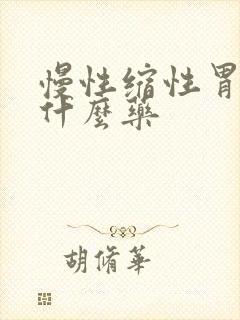 慢性缩性胃
什麼藥
胡脩華